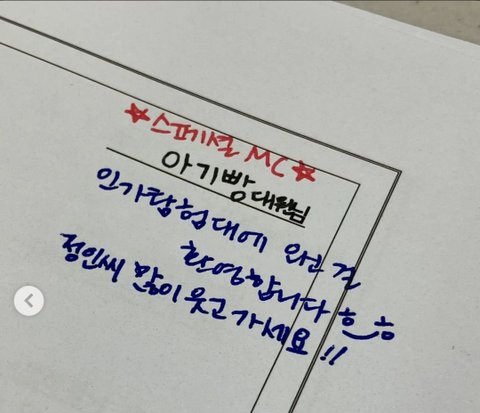 ☆스페셜 MC☆
아기빵대원님
인가탐험대에 와신 걸
환영합니다 ㅎㅎ
정인씨 많이 웃고 가세요!!